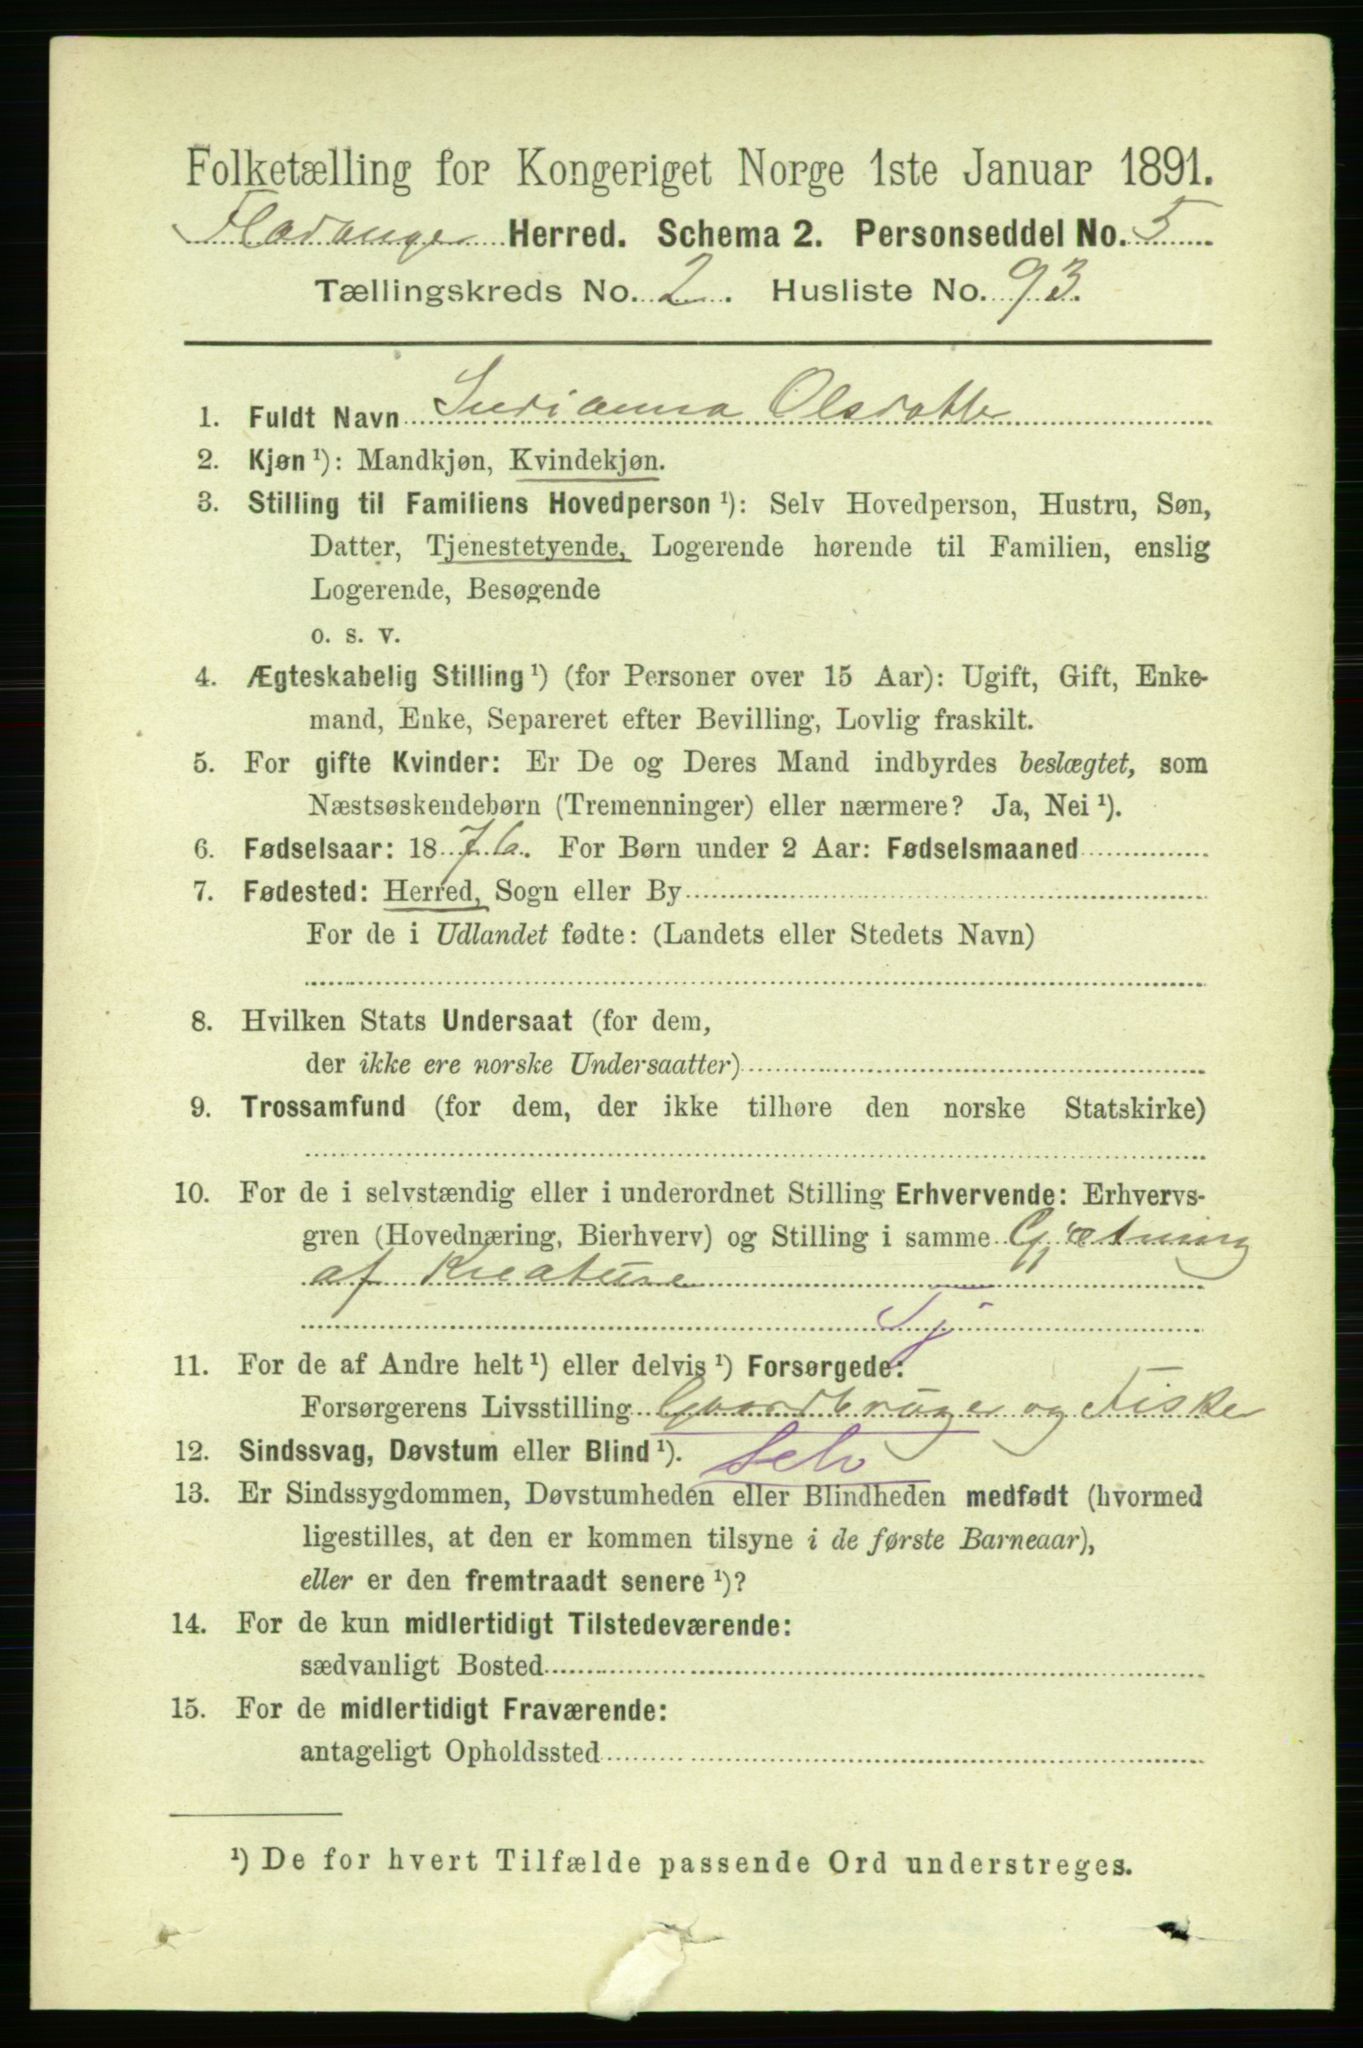 Folketælling for Kongeriget Norge 1ste Januar 1891.
Fladanger Herred. Schema 2. Personseddel No. 5
Tællingskreds No. 2. Husliste No. 93.
1. Fuldt Navn Olsdatter
2. Kjøn ¹): Mandkjøn, Kvindekjøn.
3. Stilling til Familiens Hovedperson ¹): Selv Hovedperson, Hustru, Søn,
Datter, Tjenestetyende, Logerende hørende til Familien, enslig
Logerende, Besøgende
o. s. v.
4. Ægteskabelig Stilling ¹) (for Personer over 15 Aar): Ugift, Gift, Enke-
mand, Enke, Separeret efter Bevilling, Lovlig fraskilt.
5. For gifte Kvinder: Er De og Deres Mand indbyrdes beslægtet, som
Næstsøskendebørn (Tremenninger) eller nærmere? Ja, Nei ¹).
6. Fødselsaar: 1876. For Børn under 2 Aar: Fødselsmaaned
7. Fødested: Herred, Sogn eller By
For de i Udlandet fødte: (Landets eller Stedets Navn)
8. Hvilken Stats Undersaat (for dem,
der ikke ere norske Undersaatter)
9. Trossamfund (for dem, der ikke tilhøre den norske Statskirke)
10. For de i selvstændig eller i underordnet Stilling Erhvervende: Erhvervs-
gren (Hovednæring, Bierhverv) og Stilling i samme Gjætning
af Kreature
Tj
11. For de af Andre helt ¹) eller delvis ¹) Forsørgede:
Forsørgerens Livsstilling Gaardbruger og Fisker
12. Sindssvag, Døvstum eller Blind ¹). Selv
13. Er Sindssygdommen, Døvstumheden eller Blindheden medfødt (hvormed
ligestilles, at den er kommen tilsyne i de første Barneaar),
eller er den fremtraadt senere ¹)?
14. For de kun midlertidigt Tilstedeværende:
sædvanligt Bosted
15. For de midlertidigt Fraværende:
antageligt Opholdssted
¹) De for hvert Tilfælde passende Ord understreges.